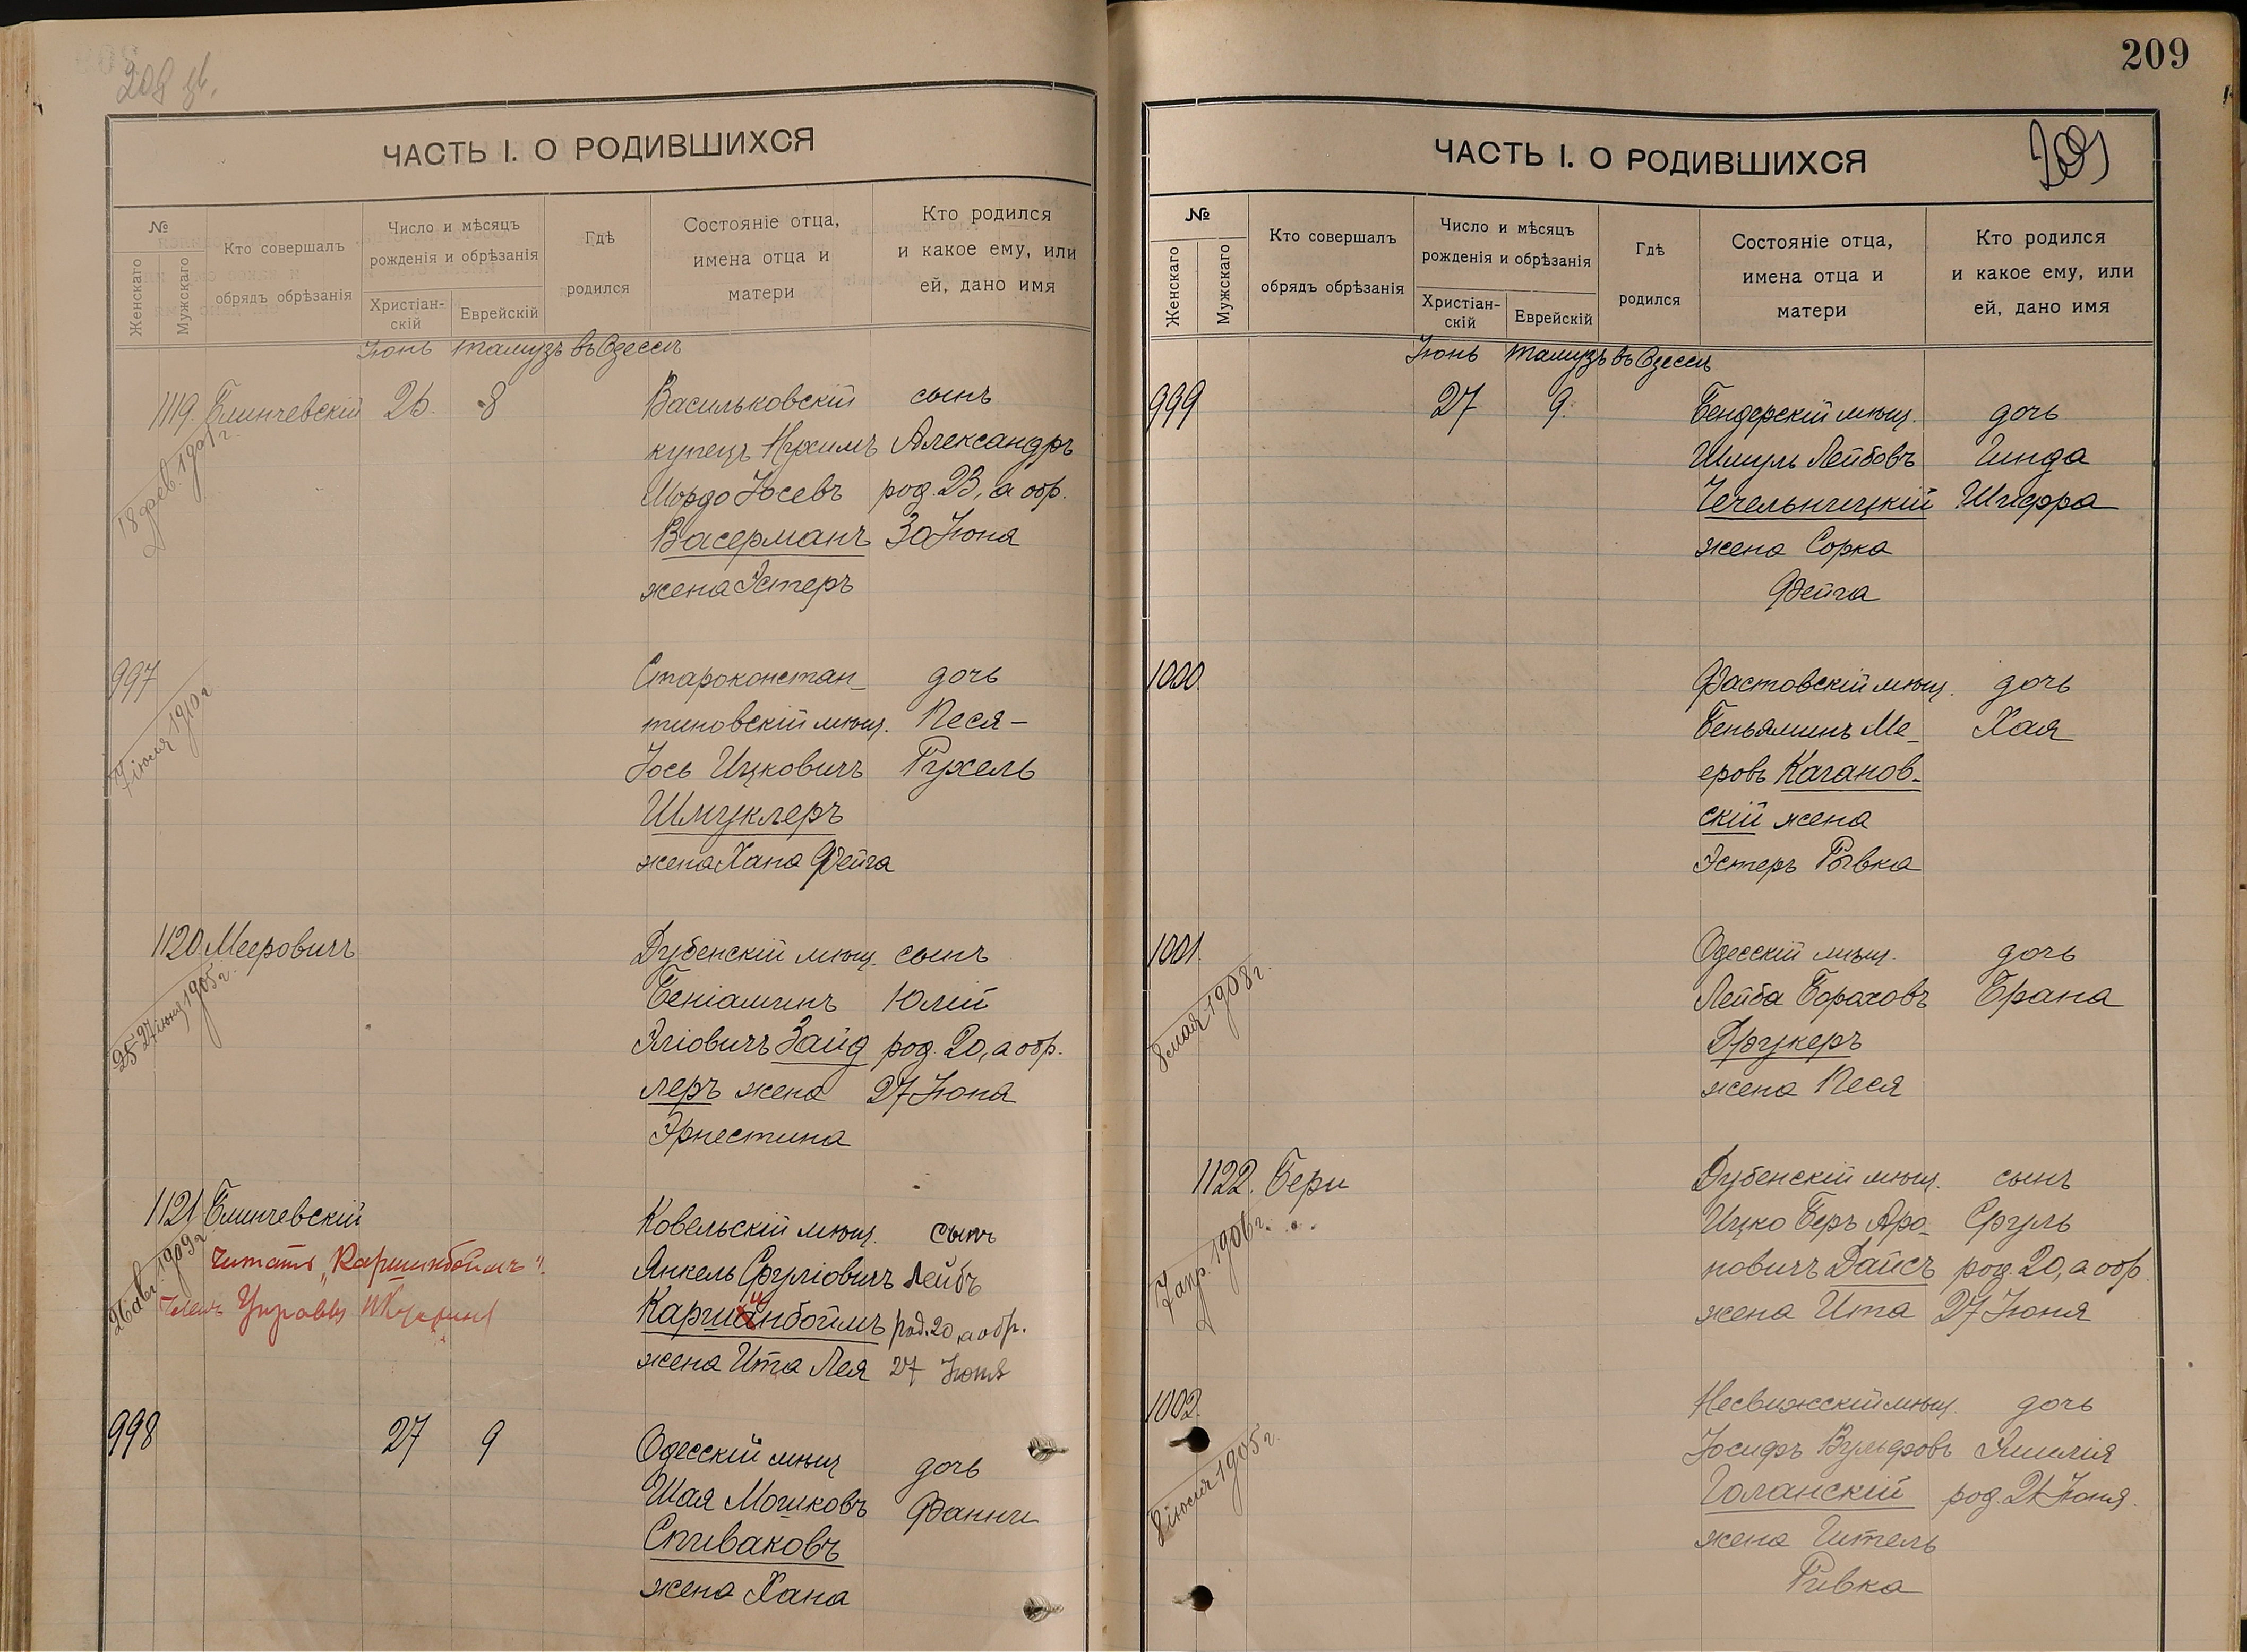 209
ЧАСТЬ I. О РОДИВШИХСЯ
№
Женскаго
Мужскаго
Кто совершалъ
обрядъ обрѣзанія
Число и мѣсяцъ
рожденія и обрѣзанія
Христіан-
скій
Еврейскій
Гдѣ
родился
Состояніе отца,
имена отца и
матери
Кто родился
и какое ему, или
ей, дано имя
Іюнь Тамузъ въ Одессѣ
1119. Блинчевскій 26. 8 Васильковскій сынъ
купецъ Нухимъ Александръ
Мордо Іосевъ род. 23, а обр.
Васерманъ 30 Іюня
жена Эстеръ
997 Староконстан- дочь
тиновскій мѣщ. Песя-
Іось Ицковичъ Рухель
Шмуклеръ
жена Хана Фейга
7 іюля 1910 г
1120. Мееровичъ Дубенскій мѣщ. сынъ
Беніаминъ Юлій
Эліовичъ Зайд род. 20, а обр.
леръ жена 27 Іюня
Эрнестина
1121 Блинчевскій Ковельскій мѣщ. сынъ
Читать „Каршинбоймъ".
Янкель Сруліовичъ Лейбъ
Каршинбоймъ род. 20, а обр.
жена Ита Лея 27 Іюня
998 27 9 Одесскій мѣщ дочь
Шая Мошковъ Фанни
Спиваковъ
жена Хана
209
ЧАСТЬ I. О РОДИВШИХСЯ
209
№
Женскаго
Мужскаго
Кто совершалъ
обрядъ обрѣзанія
Число и мѣсяцъ
рожденія и обрѣзанія
Христіан-
скій
Еврейскій
Гдѣ
родился
Состояніе отца,
имена отца и
матери
Кто родился
и какое ему, или
ей, дано имя
Іюнь Тамузъ въ Одессѣ
999 27 9. Бендерскій мѣщ. дочь
Шмуль Лейбовъ Гинда
Чечельницкій Шифра
жена Сорка
Фейга
1000. Фастовскій мѣщ. дочь
Беньяминъ Ме- Хая
еровъ Каганов-
скій жена
Эстеръ Рывка
1001. Одесскій мѣщ. дочь
Лейба Бораховъ Брана
Друкеръ
жена Песя
8 мая 1908 г.
1122. Бери Дубенскій мѣщ. сынъ
Ицко Беръ Аро- Сруль
новичъ Дайсъ род. 20, а обр.
жена Ита 27 Іюня
7 апр. 1906 г.
1002. Несвижскій мѣщ. дочь
Іосифъ Вульфовъ Эмилія
Голанскій род. 21 Іюня.
жена Гитель
Ривка
8 іюля 1905 г.